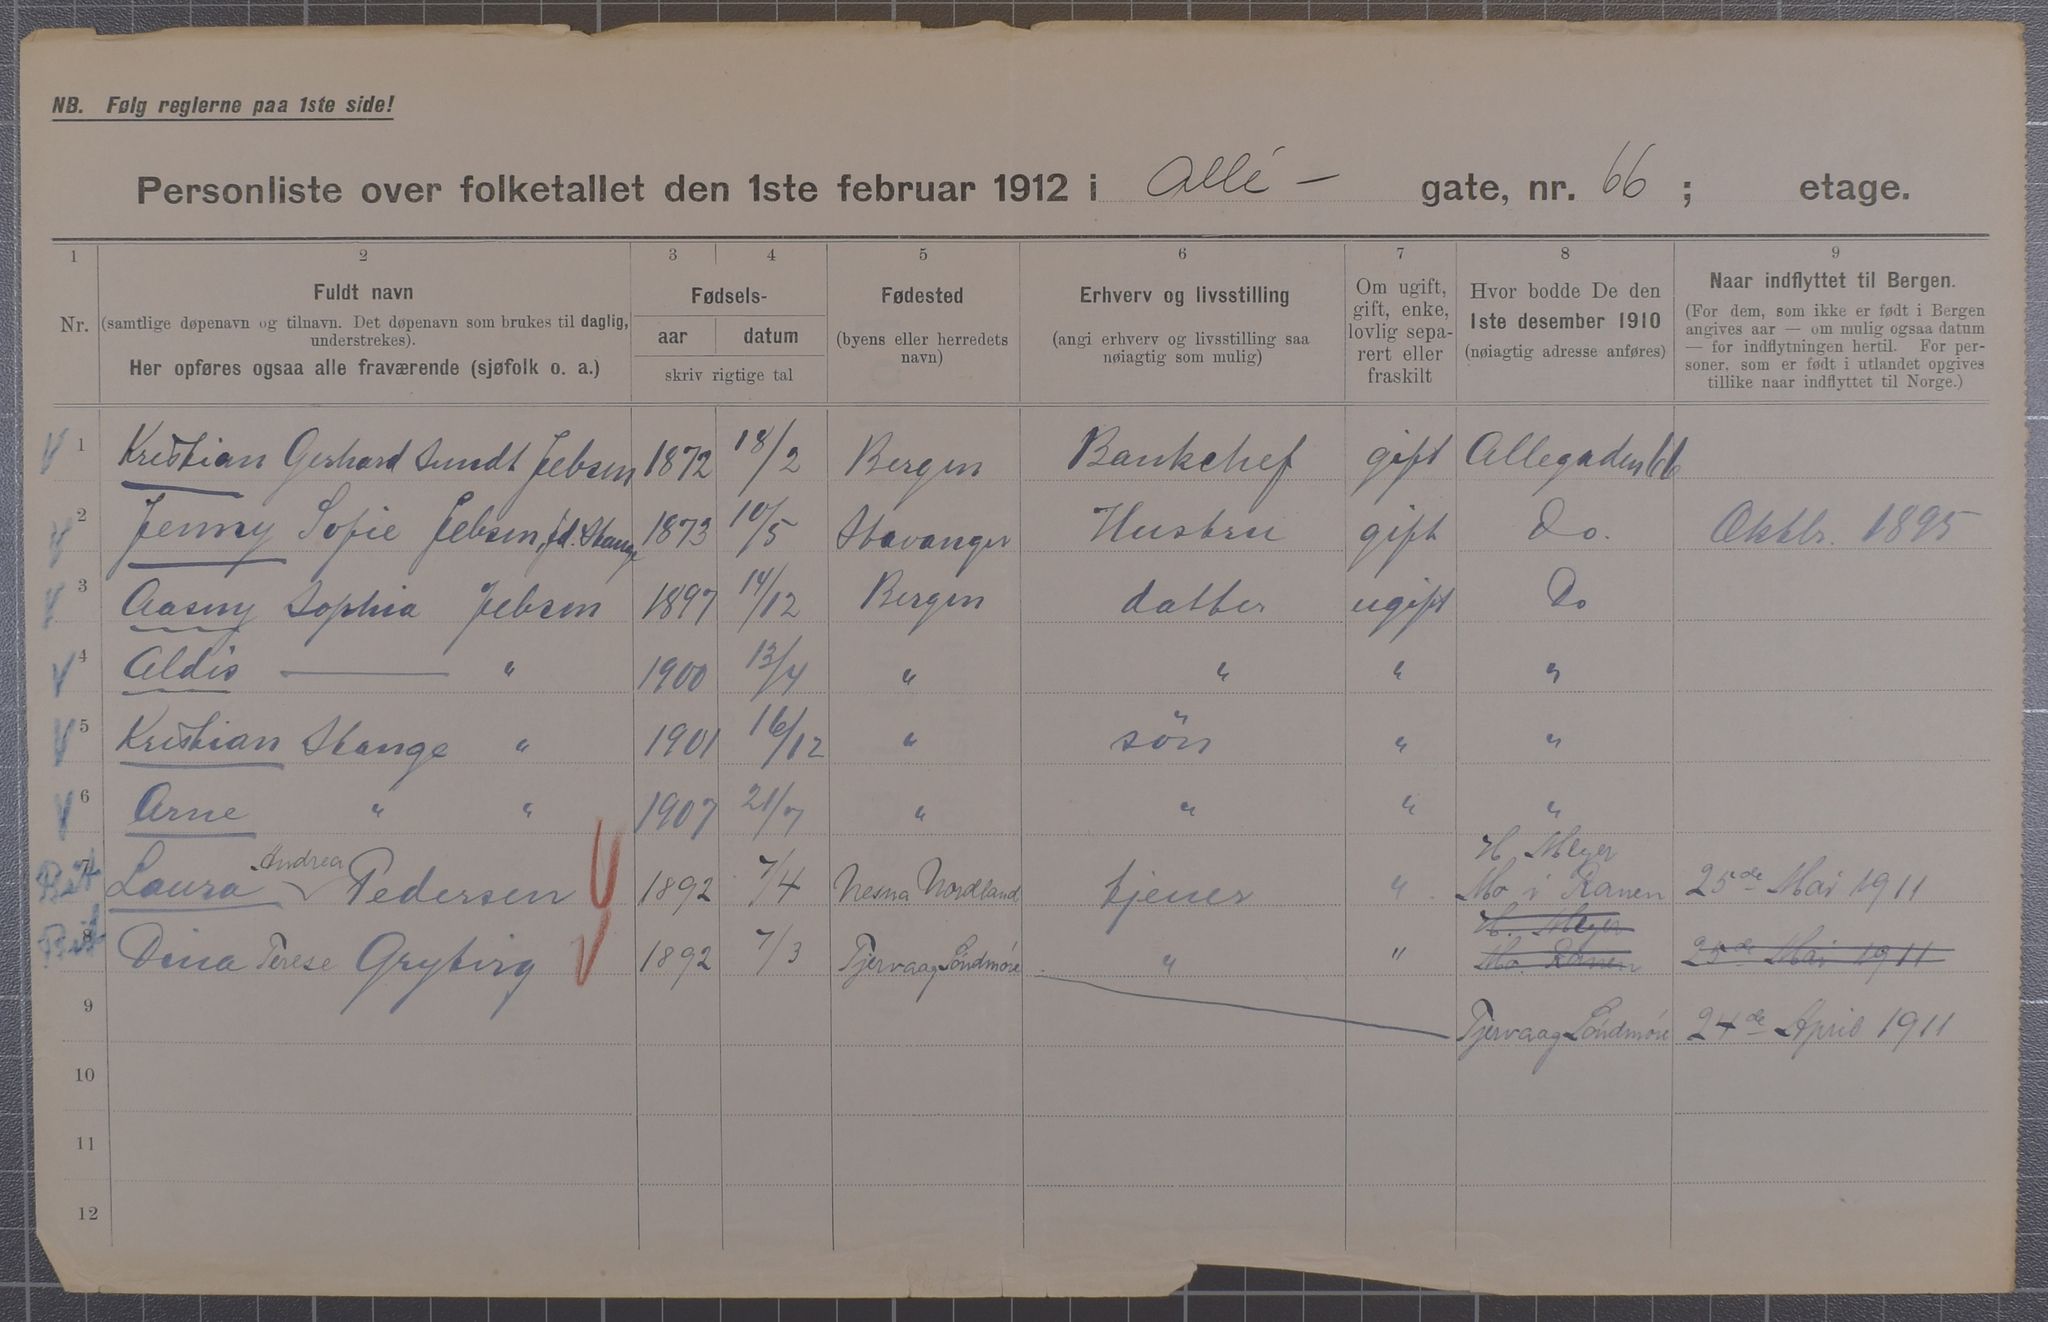 NB. Følg reglerne paa 1ste side!
Personliste over folketallet den 1ste februar 1912 i Allé - gate, nr. 66 ; etage.
1 2 3 4 5 6 7 8 9
Nr.
Fuldt navn
(samtlige døpenavn og tilnavn. Det døpenavn som brukes til daglig, understrekes).
Her opføres ogsaa alle fraværende (sjøfolk o. a.)
Fødsels-
aar datum
skriv rigtige tal
Fødested
(byens eller herredets navn)
Erhverv og livsstilling
(angi erhverv og livsstilling saa nøiagtig som mulig)
Om ugift, gift, enke, lovlig separert eller fraskilt
Hvor bodde De den 1ste desember 1910
(nøiagtig adresse anføres)
Naar indflyttet til Bergen.
(For dem, som ikke er født i Bergen angives aar — om mulig ogsaa datum — for indflytningen hertil. For personer, som er født i utlandet opgives tillike naar indflyttet til Norge.)
1 Kristian Gerhard Sundt Jebsen 1872 18/2 Bergen Bankchef gift Allegaden 66
2 Jenny Sofie Jebsen, fd. Stange 1873 10/5 Stavanger Hustru gift Do. Oktbr. 1895
3 Aasny Sophia Jebsen 1897 14/12 Bergen datter ugift Do
4 Aldis — " 1900 13/4 " " " "
5 Kristian Stange " 1901 16/12 " sön " "
6 Arne " " 1907 21/7 " " " "
7 Laura Andrea Pedersen 1892 7/4 Nesna Nordland tjener " H. Meyer Mo i Ranen 25de Mai 1911
8 Dina Terese Gryting 1892 7/3 Tjervaag Söndmöre " " H. Meyer Mo. Ranen 25de Mai 1911
9 Tjervaag Söndmöre 24de April 1911
10
11
12